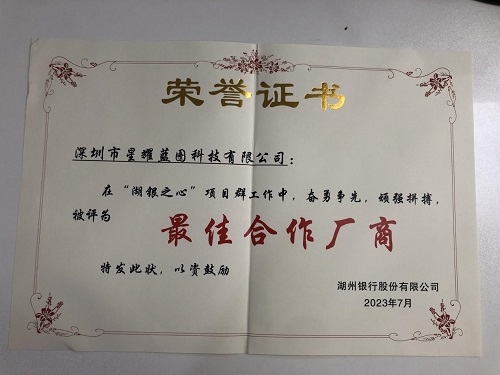 荣誉证书
深圳市星耀蓝图科技有限公司：
在“湖银之心”项目群工作中，奋勇争先，顽强拼搏，
被评为
最佳合作厂商
特发此状，以资鼓励
湖州银行股份有限公司
2023年7月